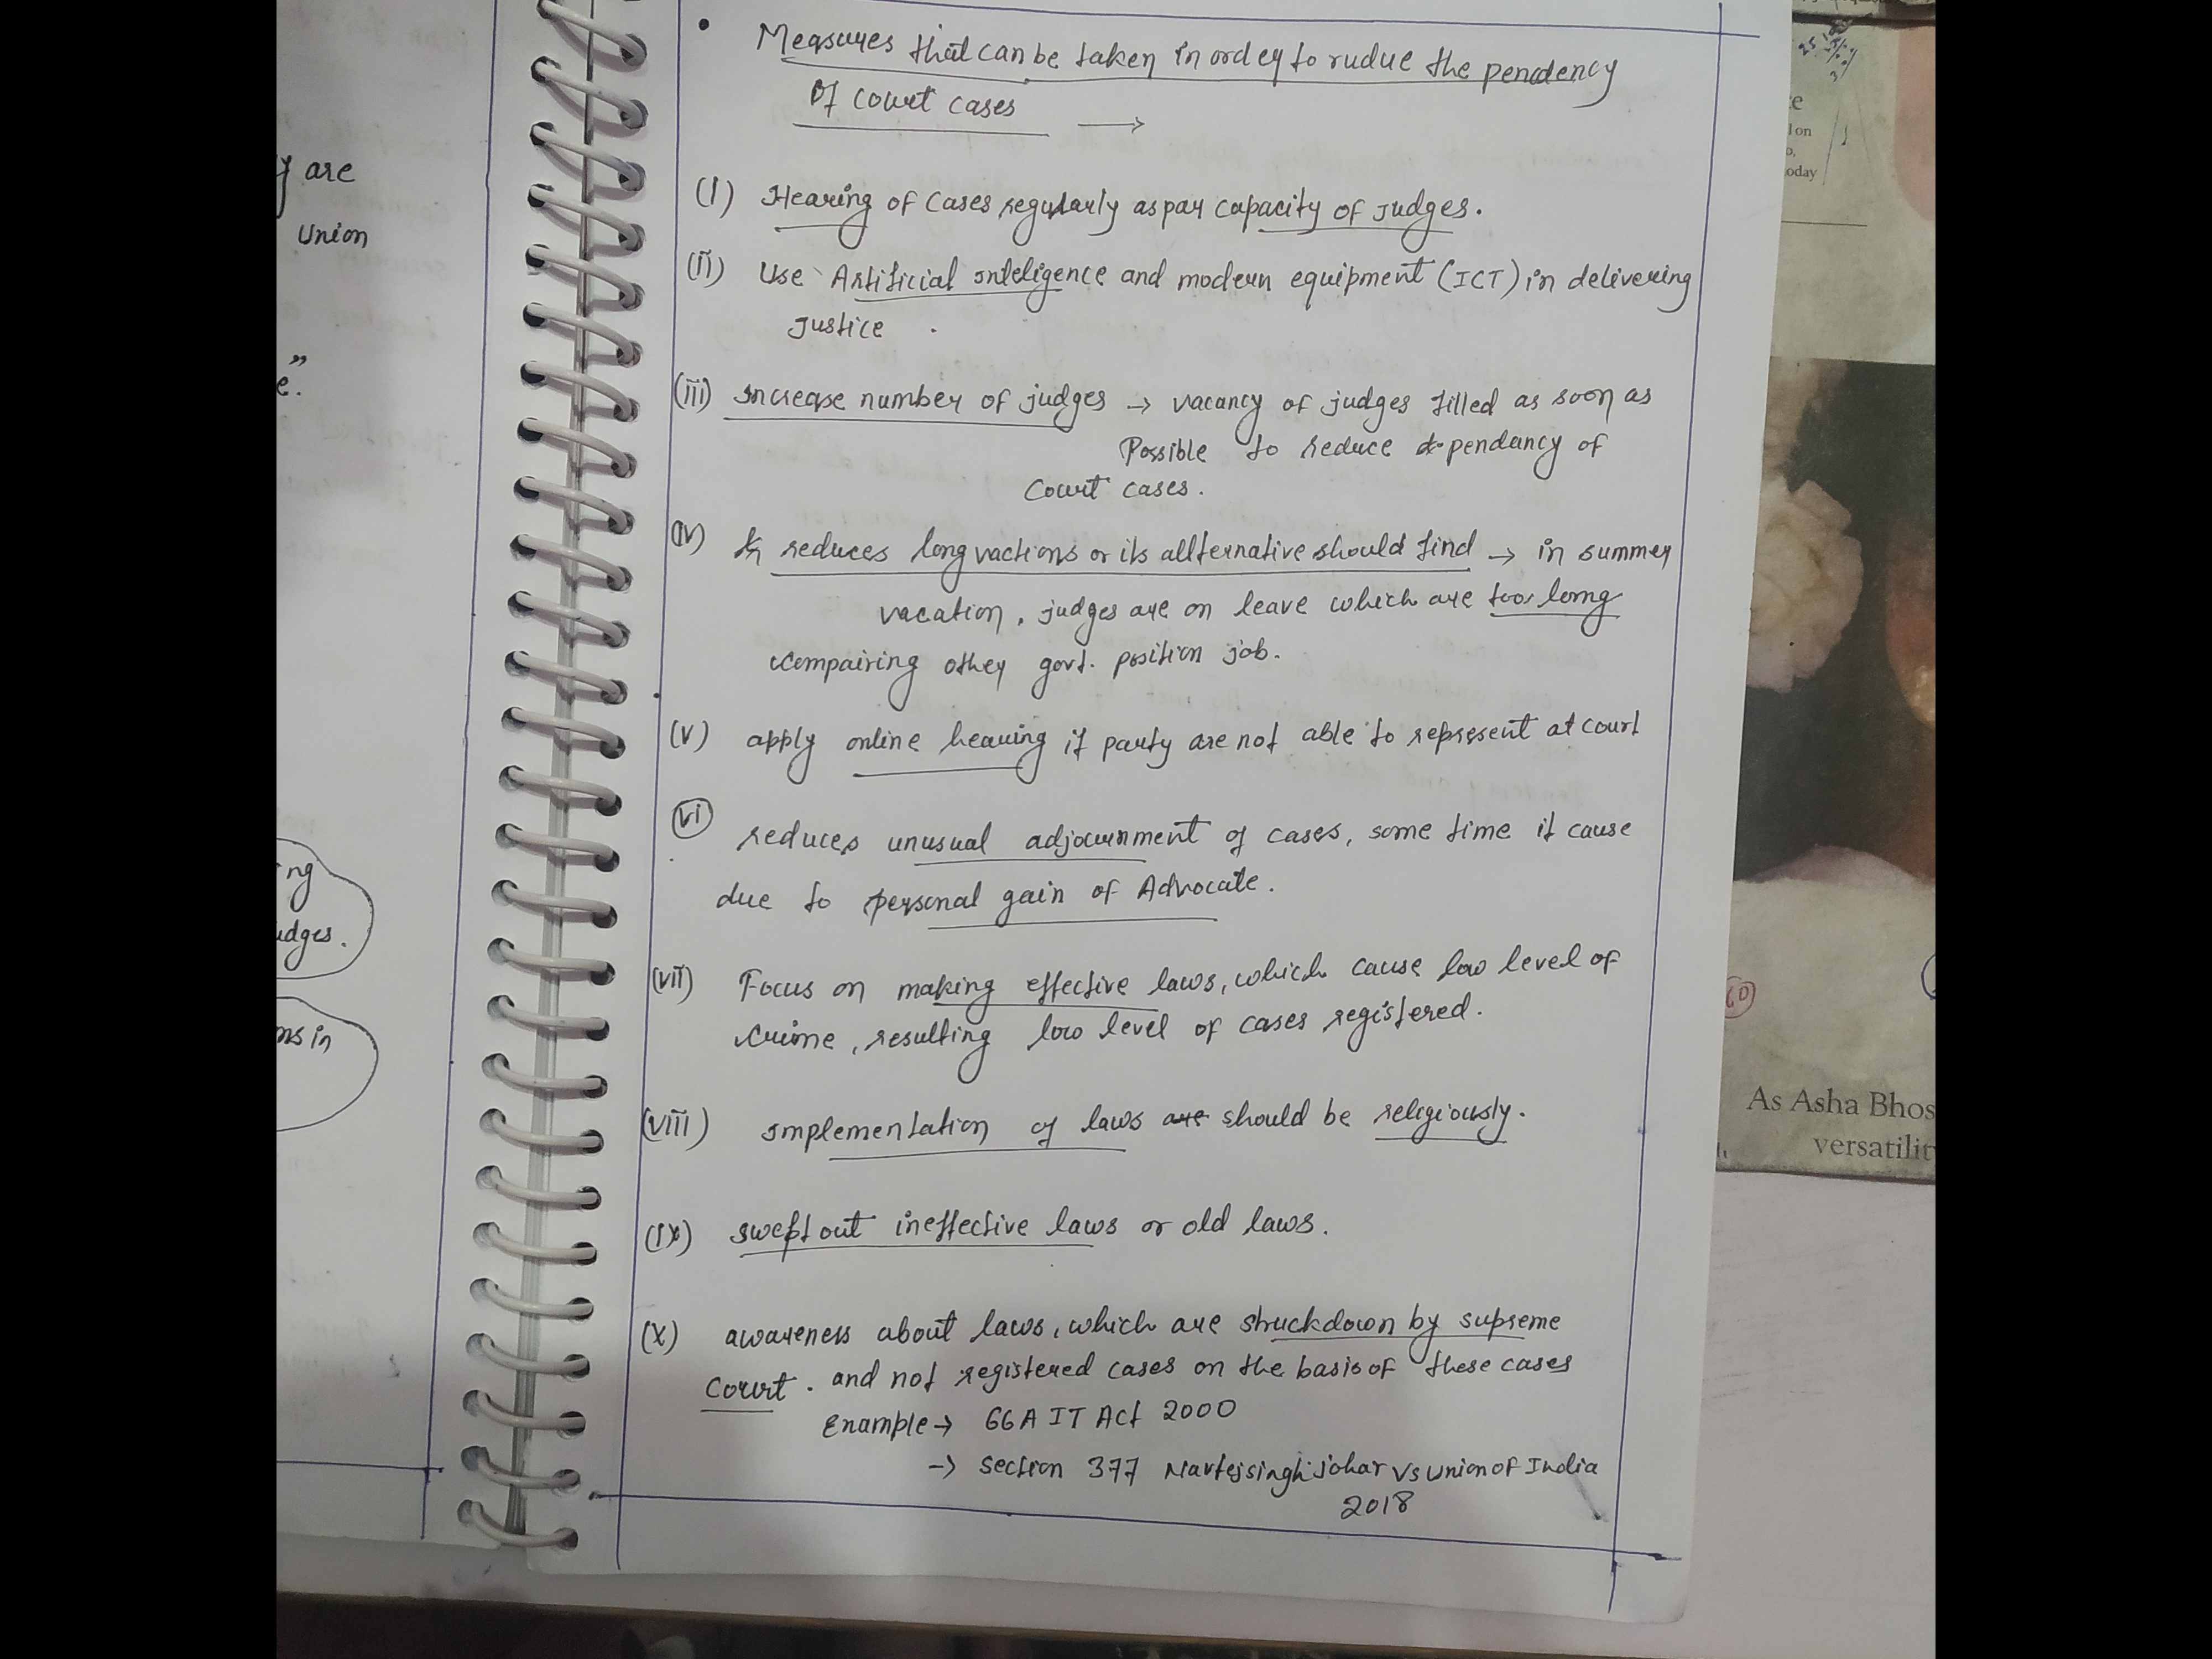 y are
Union
e.”
ng
udges.
ns in
• Measures that can be taken in order to rudue the penddency
of court cases →
(I) Hearing of cases regularly as par capacity of judges.
(ii) Use Artificial Inteligence and modern equipment (ICT) in delivering
Justice .
(iii) Increase number of judges → vacancy of judges filled as soon as
Possible to reduce pendancy of
Court cases.
(iv) reduces long vactions or its allternative should find → in summer
vacation, judges are on leave which are too long
compairing other govt. position job.
(v) apply online hearing if party are not able to represent at court
(vi) reduces unusual adjournment of cases, some time it cause
due to personal gain of Advocate.
(vii) Focus on making effective laws, which cause low level of
crime, resulting low level of cases registered.
(viii) Implementation of laws are should be religiously.
(ix) swept out ineffective laws or old laws.
(x) awareness about laws, which are struckdown by supreme
Court. and not registered cases on the basis of these cases
Example → 66A IT Act 2000
→ section 377 Navtejsingh johar Vs Union of India
2018
e
on
oday
As Asha Bhos
versatilit